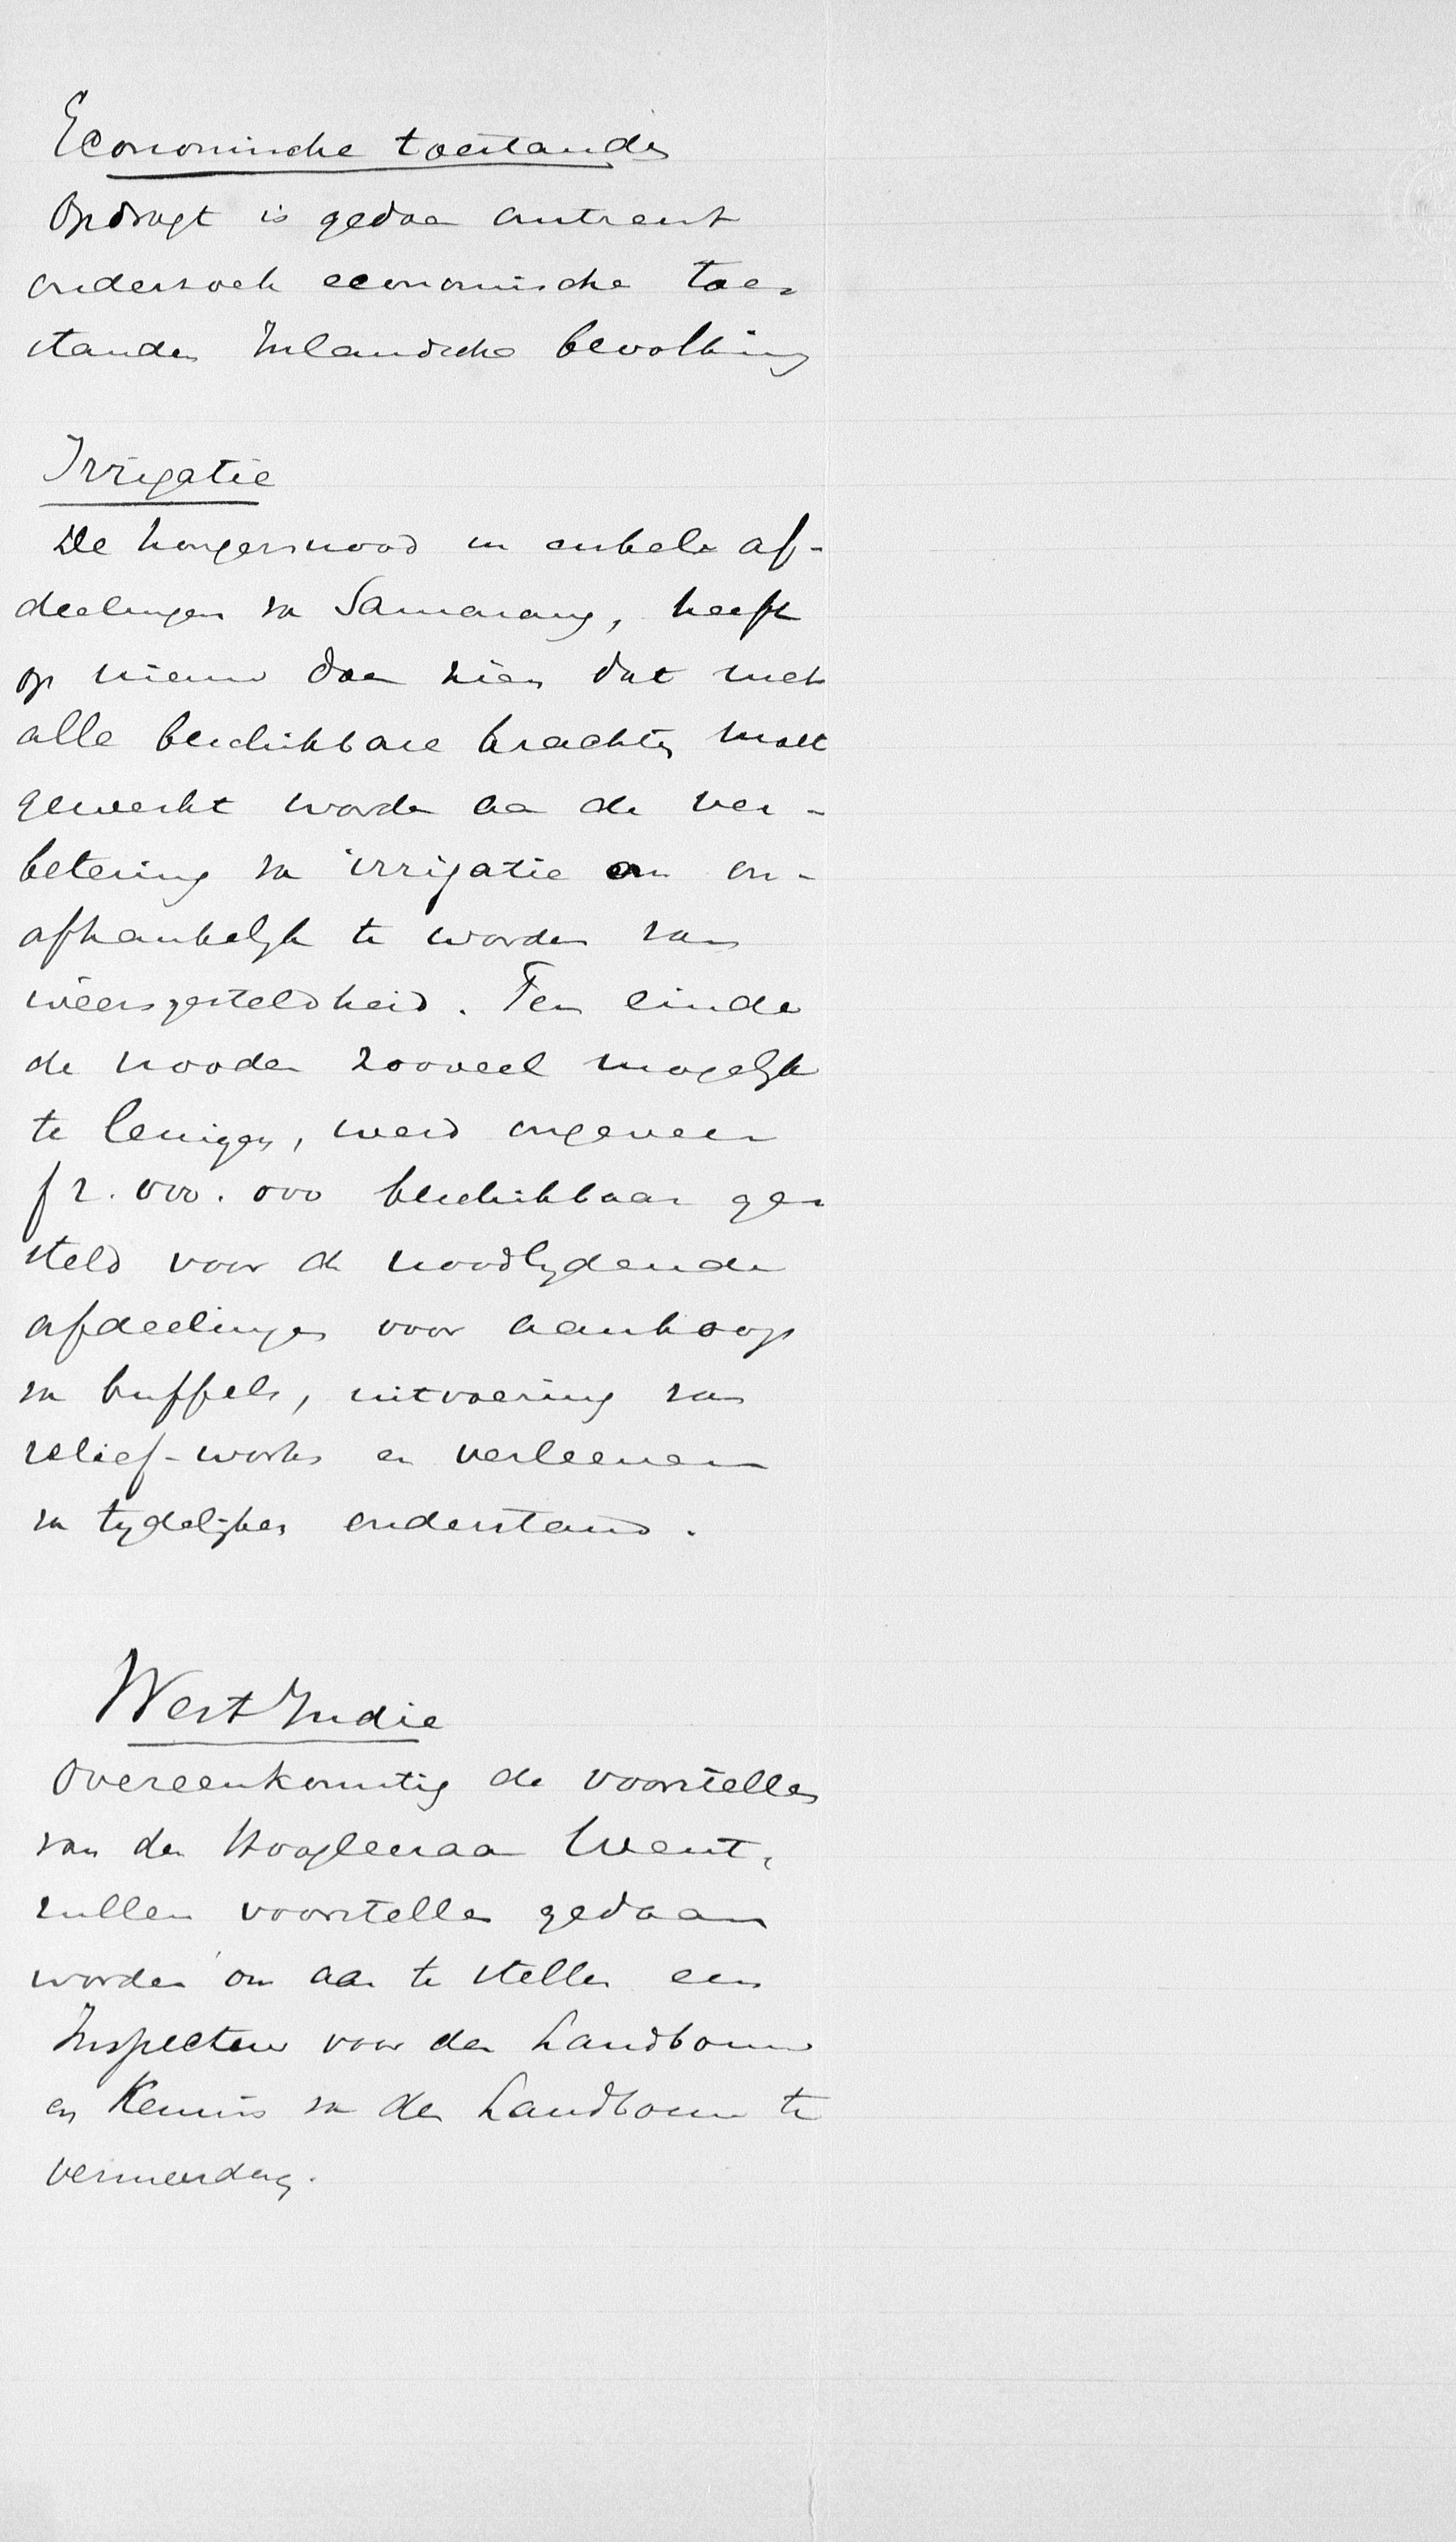 Economische toestanden
Opdragt is gedaan omtrent
onderzoek economische toe-
standen Inlandsche bevolking
Irrigatie
De hongersnood in enkele af-
deelingen van Samarang, heeft
op nieuw doen zien dat met
alle beschikbare krachten moet
gewerkt worden aan de ver-
betering van irrigatie om on-
afhankelijk te worden van
weersgesteldheid. Ten einde
de nooden zooveel mogelijk
te lenigen, werd ongeveer
f 2.000.000 beschikbaar ge-
steld voor de noodlydende
afdeelingen voor aankoop
van buffels, uitvoering van
relief-works en verleenen
van tydelijken onderstand.
West Indie
Overeenkomstig de voorstellen
van den Hoogleeraar Went,
zullen voorstellen gedaan
worden om aan te stellen een
Inspecteur voor den Landbouw
en Kennis van den Landbouw te
vermeerderen.